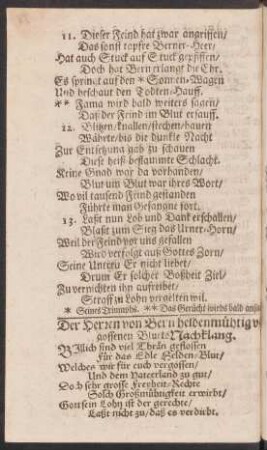 11. Dieser Feind hat zwar angriffen/
Das sonst tapfre Berner-Heer/
Hat auch Stuck auf Stuck gepfiffen/
Doch hat Bern erlangt die Ehr.
Es springt auf den * Sonnen-Wagen
Und beschaut den Todten-Hauff.
** Fama wird bald weiters sagen/
Daß der Feind im Blut ersauff.
12. Blitzen/knallen/stechen/hauen
Währte/biß die dunkle Nacht
Zur Entsetzung gab zu schauen
Diese heiß beflammte Schlacht.
Keine Gnad war da vorhanden/
Blut um Blut war ihres Wort/
Wo vil tausend Feind gestanden
Führte man Gefangne fort.
13. Laßt nun Lob und Dank erschallen/
Blaßt zum Sieg das Urner-Horn/
Weil der Feind vor uns gefallen
Wird verfolgt auß Gottes Zorn/
Seine Untreu Er nicht liebet/
Drum Er solcher Boßheit Ziel/
Zu vernichten ihn aufreibet/
Straff zu Lohn vergelten wil.
* Seines Triumphs. ** Das Gerücht wirds bald
Der Herren von Bern heldenmühtig
gossenen Bluts Nachklang.
BIllich sind viel Thrän geflossen
Für das Edle Helden-Blut/
Welches wir für euch vergossen/
Und dem Vaterland zu gut/
Doch sehr grosse Freyheit-Rechte
Solch Großmühtigkeit erwirbt/
Gott sein Lohn ist der gerechte/
Laßt nicht zu/daß es verdirbt.